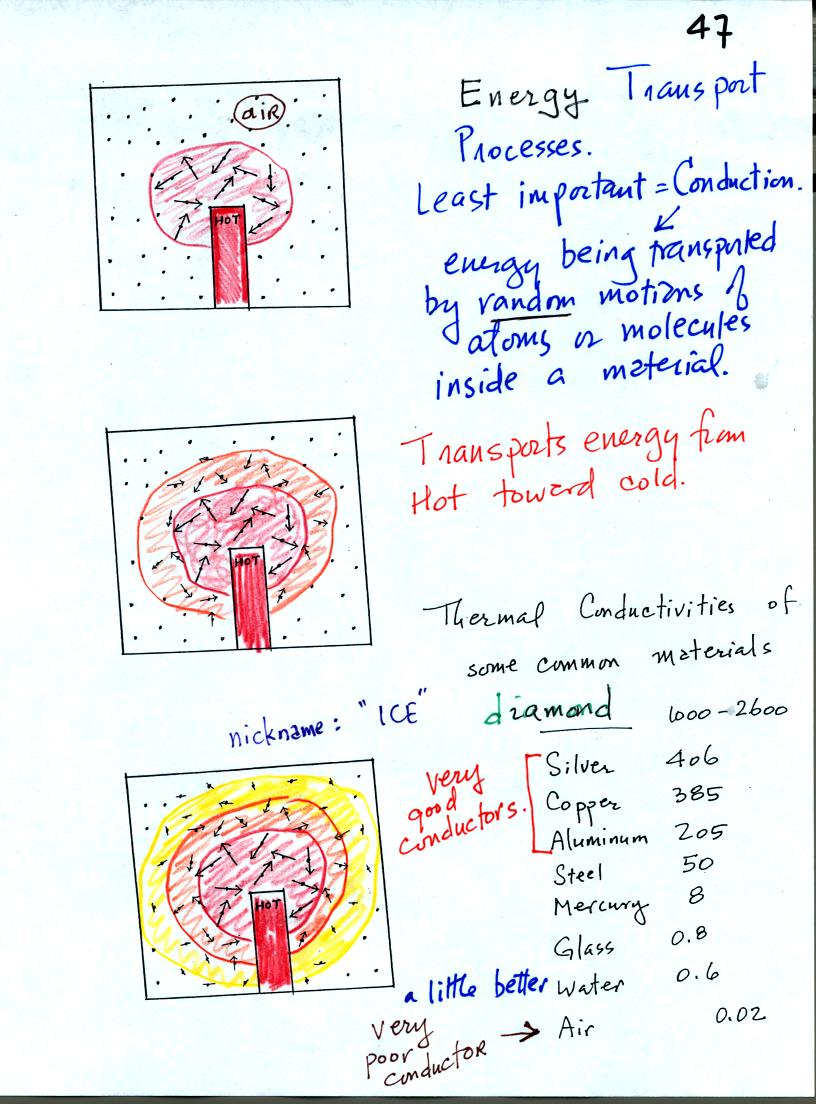 47
Energy Transport
Processes.
Least important = Conduction.
energy being transported
by random motions of
atoms or molecules
inside a material.
air
HOT
Transports energy from
Hot toward cold.
HOT
Thermal Conductivities of
some common materials
nickname: "ICE" diamond 1000-2600
very good conductors.
Silver 406
Copper 385
Aluminum 205
Steel 50
Mercury 8
Glass 0.8
a little better Water 0.6
very poor conductor → Air 0.02
HOT